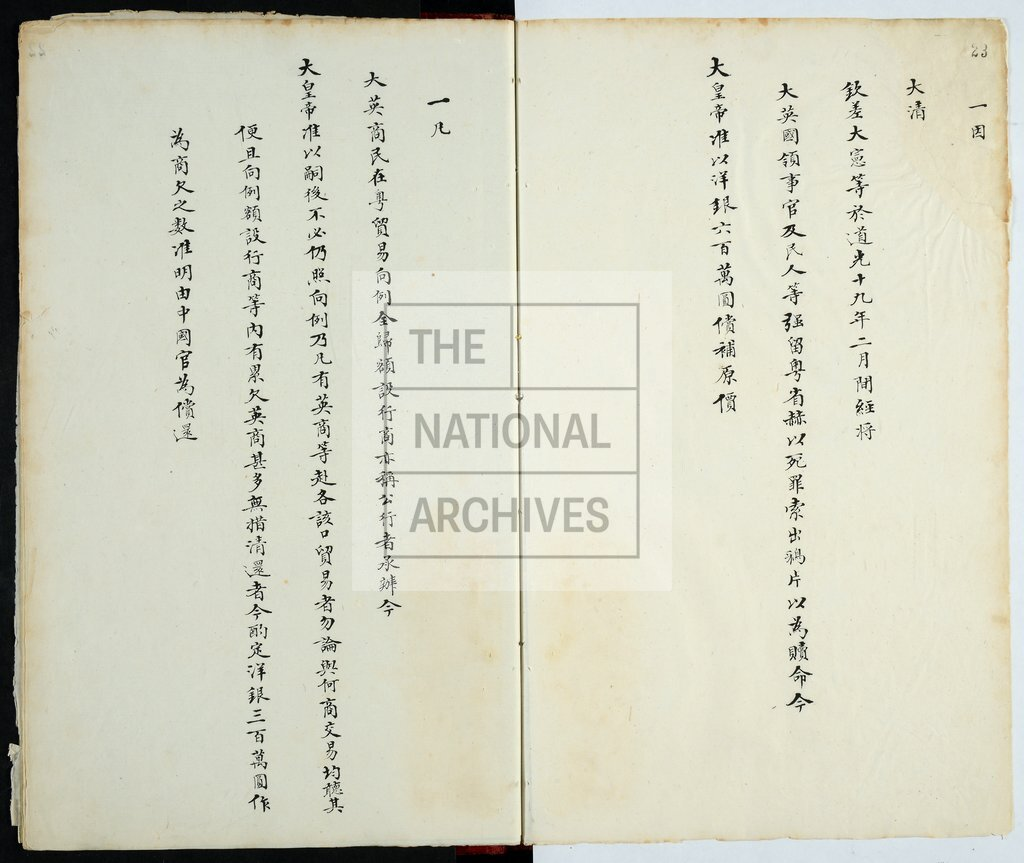 23
一因
大清
欽差大憲等於道光十九年二月間經將
大英國領事官及民人等强留粵省赫以死罪索出鴉片以為贖命今
大皇帝准以洋銀六百萬圓償補原價
一凡
大英商民在粵貿易向例全歸額設行商亦稱公行者承辦今
大皇帝准以嗣後不必仍照向例乃凡有英商等赴各該口貿易者勿論與何商交易均聽其
便且向例額設行商等內有累欠英商甚多無措清還者今酌定洋銀三百萬圓作
為商欠之數准明由中國官為償還
THE
NATIONAL
ARCHIVES